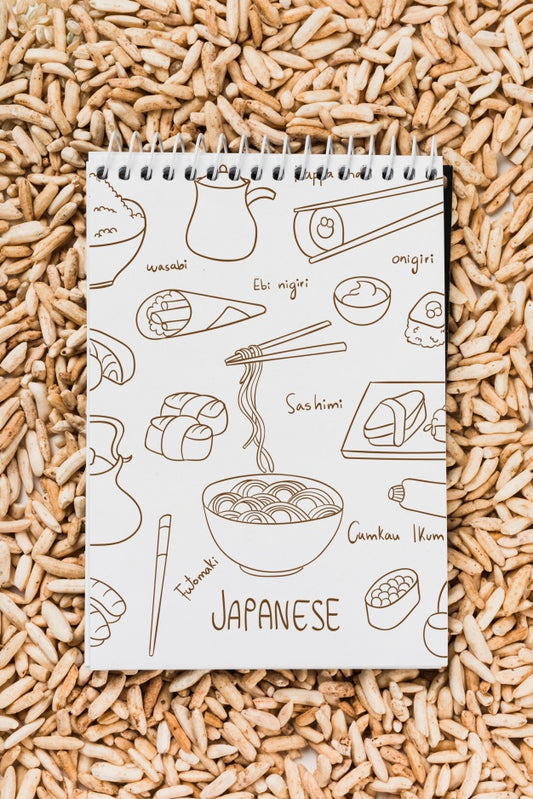 Kappa
wasabi
Ebi nigiri
onigiri
Sashimi
Cumkau IKum
Futomaki
JAPANESE